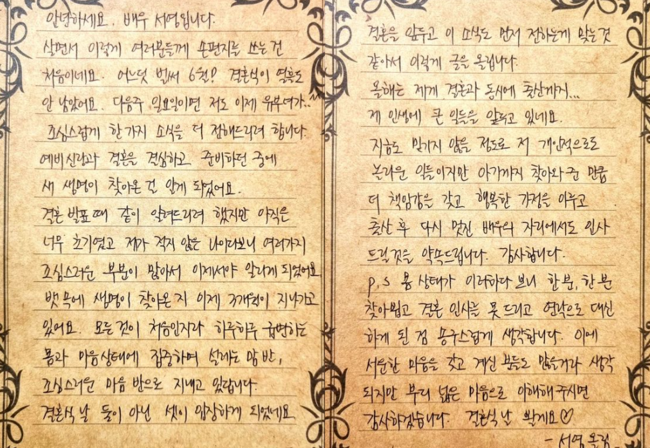 안녕하세요. 배우 서영입니다.
살면서 이렇게 여러분들께 손편지를 쓰는 건
처음이네요. 어느덧 벌써 6월? 결혼식이 열흘도
안 남았어요. 다음주 일요일이면 저도 이제 유부녀가...
조심스럽게 한가지 소식을 더 전해드리려 합니다.
예비신랑과 결혼을 결심하고 준비하던 중에
새 생명이 찾아온 걸 알게 되었어요.
결혼 발표 때 같이 알려드리려 했지만 아직은
너무 초기였고 제가 적지 않은 나이다보니 여러가지
조심스러운 부분이 많아서 이제서야 알리게 되었어요
뱃속에 생명이 찾아온 지 이제 3개월이 지나가고
있어요. 모든것이 처음인지라 하루하루 급변하는
몸과 마음상태에 집중하며 설레는 맘 반,
조심스러운 마음 반으로 지내고 있답니다
결혼식 날 둘이 아닌 셋이 입장하게 되었네요
결혼을 앞두고 이 소식도 먼저 전하는게 맞는것
같아서 이렇게 글을 올립니다.
올해는 제게 결혼과 동시에 출산까지...
제 인생에 큰 일들을 앞두고 있네요.
지금도 믿기지 않을 정도로 저 개인적으로도
놀라운 일들이지만 아가까지 찾아와 준 만큼
더 책임감을 갖고 행복한 가정을 이루고
출산 후 다시 멋진 배우의 자리에서도 인사
드릴것을 약속드립니다. 감사합니다.
p.s 몸 상태가 이러하다 보니 한분, 한분
찾아뵙고 결혼 인사는 못 드리고 연락으로 대신
하게 된 점 송구스럽게 생각합니다. 이에
서운한 마음을 갖고 계신 분들도 많을거라 생각
되지만 부디 넓은 마음으로 이해해 주시면
감사하겠습니다. 결혼식 날 봬게요♡
- 서영 올림